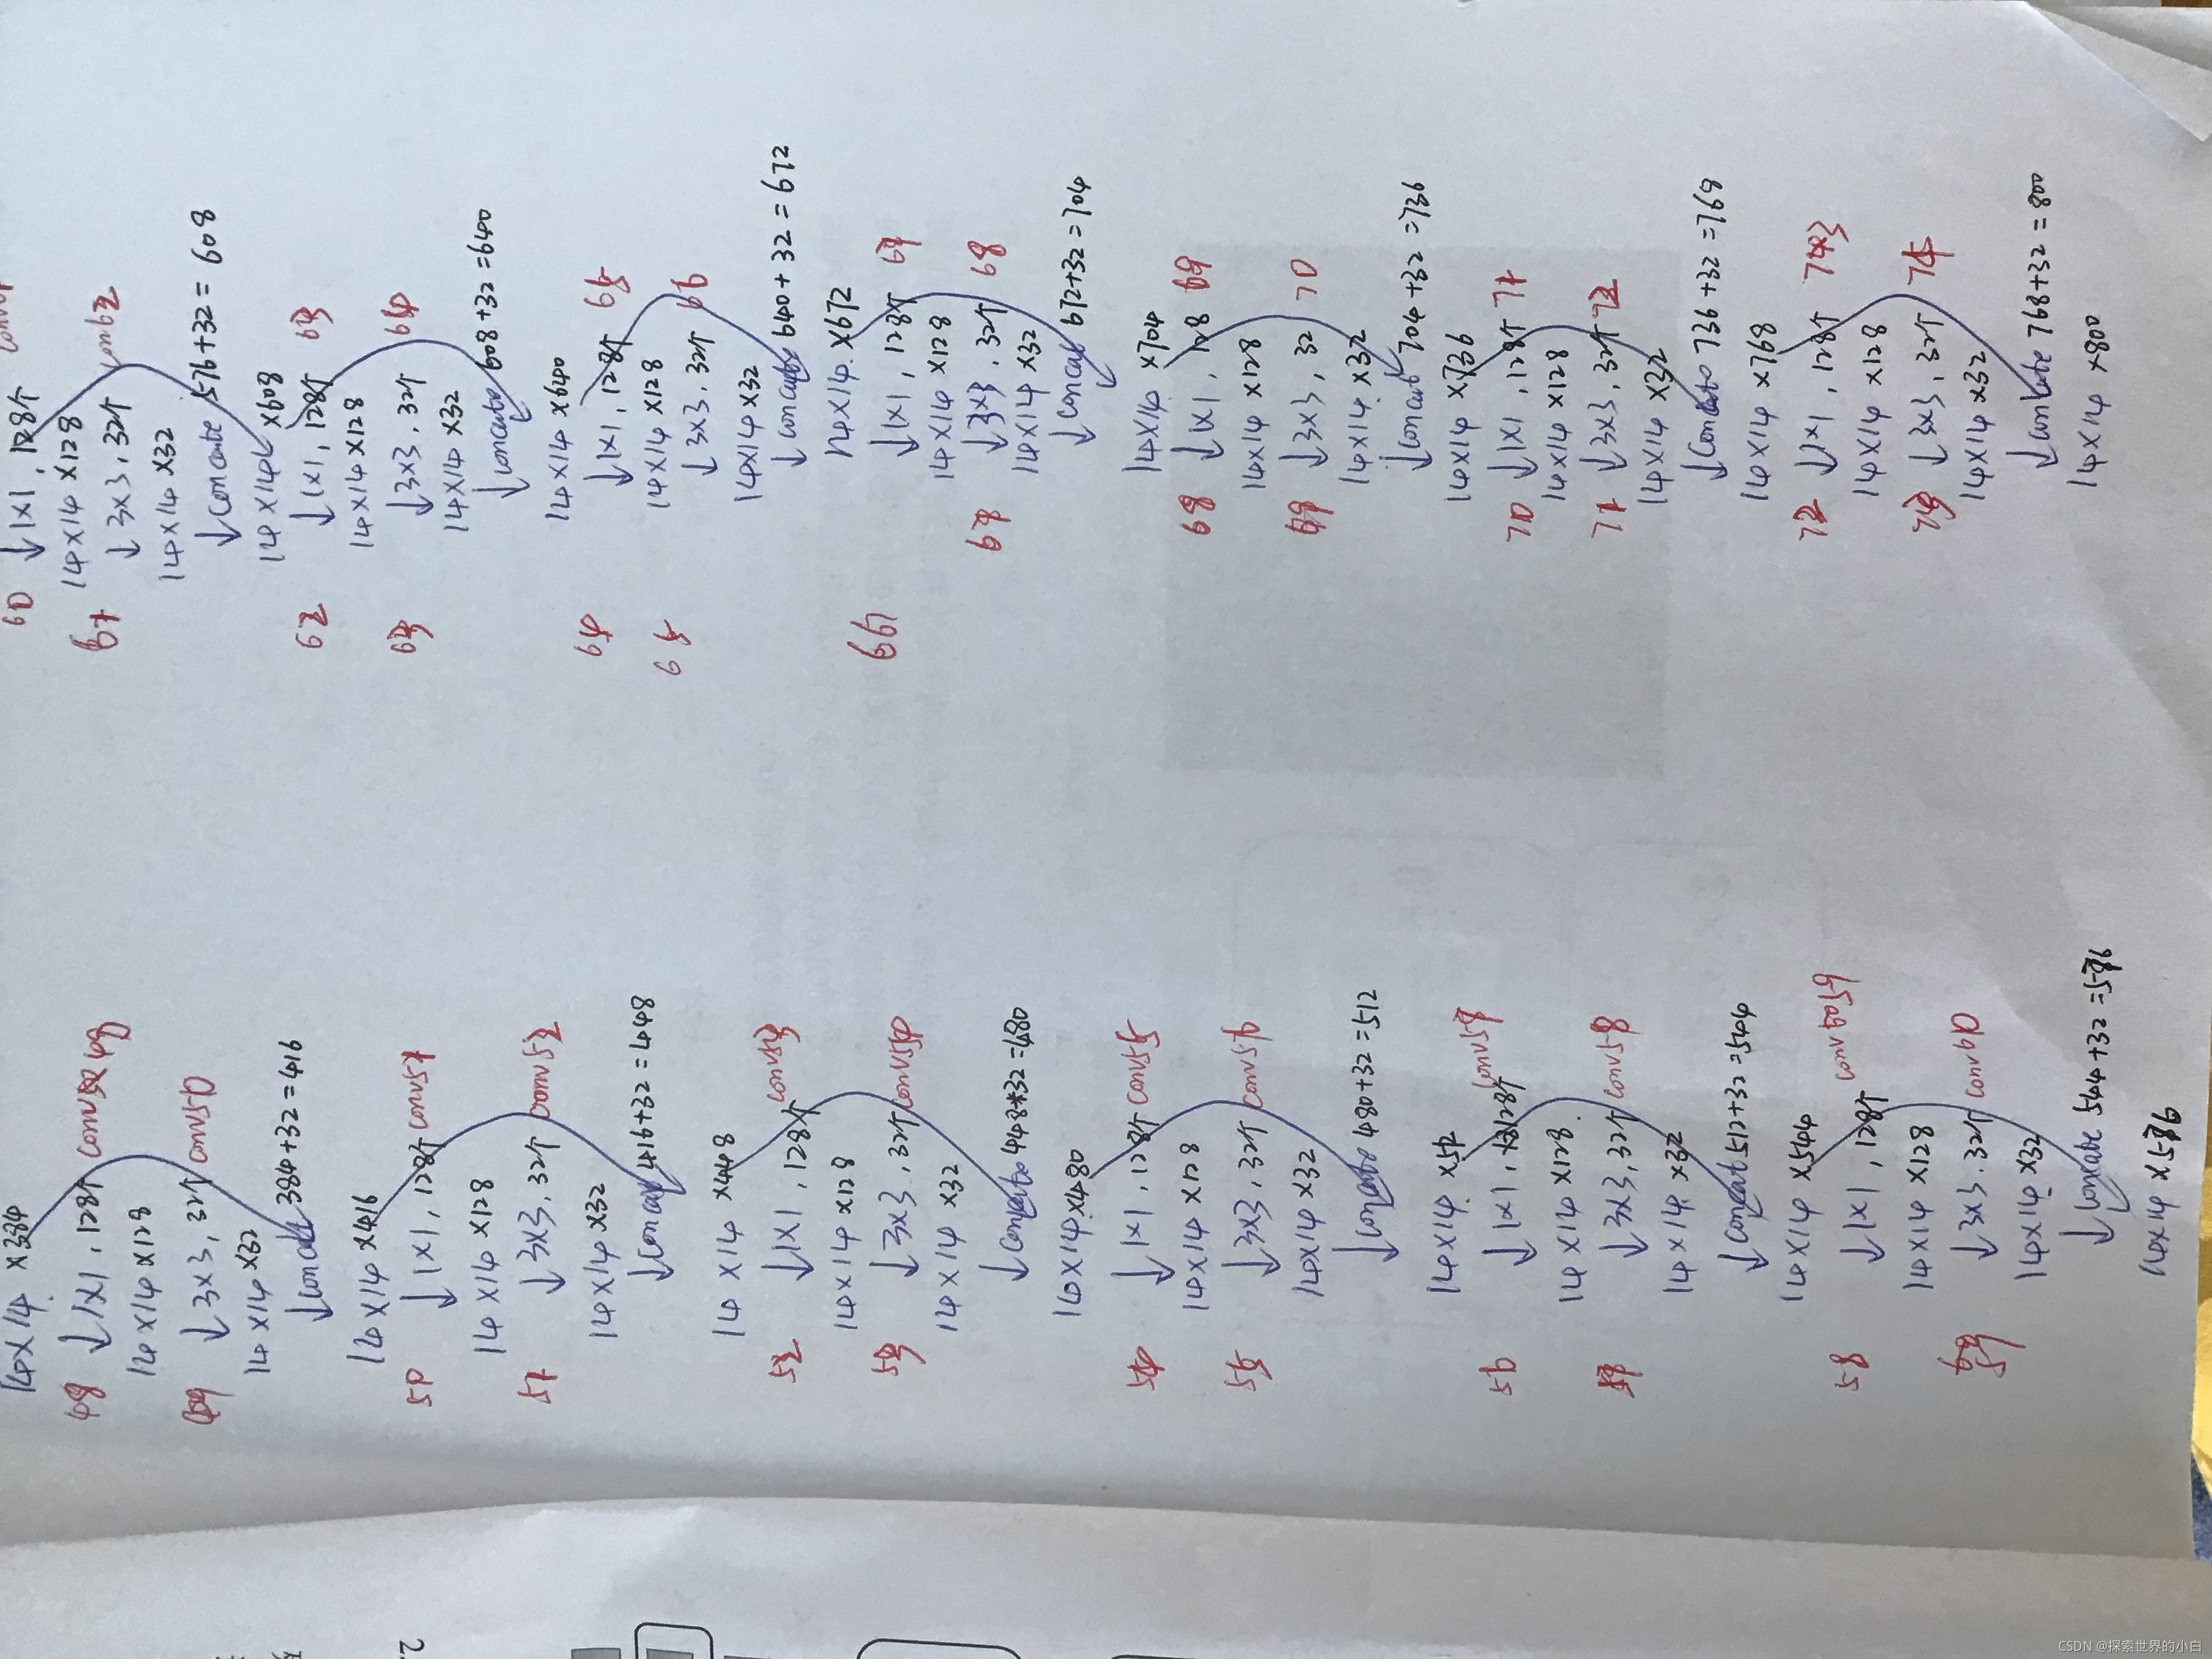 14×14×384
48 ↓1×1,128个 49
14×14×128
49 ↓3×3,32个 conv50
14×14×32
↓concate 384+32=416
14×14×416
50 ↓1×1,128个 conv51
14×14×128
51 ↓3×3,32个 conv52
14×14×32
↓concat 416+32=448
14×14×448
52 ↓1×1,128个 conv53
14×14×128
53 ↓3×3,32个 conv54
14×14×32
↓concate 448+32=480
14×14×480
54 ↓1×1,128个 conv55
14×14×128
55 ↓3×3,32个 conv56
14×14×32
↓concate 480+32=512
14×14×512
56 ↓1×1,128个 conv57
14×14×128
57 ↓3×3,32个 conv58
14×14×32
↓concat 512+32=544
14×14×544
58 ↓1×1,128个 59
14×14×128
59 ↓3×3,32个 conv60
14×14×32
↓concate 544+32=576
14×14×576
60 ↓1×1,128个
14×14×128
61 ↓3×3,32个 conv62
14×14×32
↓concate 576+32=608
14×14×608
62 ↓1×1,128个 63
14×14×128
63 ↓3×3,32个 64
14×14×32
↓concate 608+32=640
14×14×640
64 ↓1×1,128个 65
14×14×128
65 ↓3×3,32个 66
14×14×32
↓concate 640+32=672
14×14×672
66 ↓1×1,128个 67
14×14×128
67 ↓3×3,32个 68
14×14×32
↓concat 672+32=704
14×14×704
68 ↓1×1,128 69
14×14×128
69 ↓3×3,32 70
14×14×32
↓concat 704+32=736
14×14×736
70 ↓1×1,128个 71
14×14×128
71 ↓3×3,32个 72
14×14×32
↓concate 736+32=768
14×14×768
72 ↓1×1,128个 73
14×14×128
73 ↓3×3,32个 74
14×14×32
↓concate 768+32=800
14×14×800
CSDN @探索世界的小白